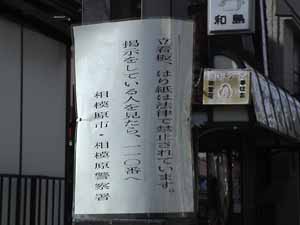 立看板、はり紙は法律で禁止されています。
掲示をしている人を見たら、一一〇番へ
相模原市・相模原警察署
和島